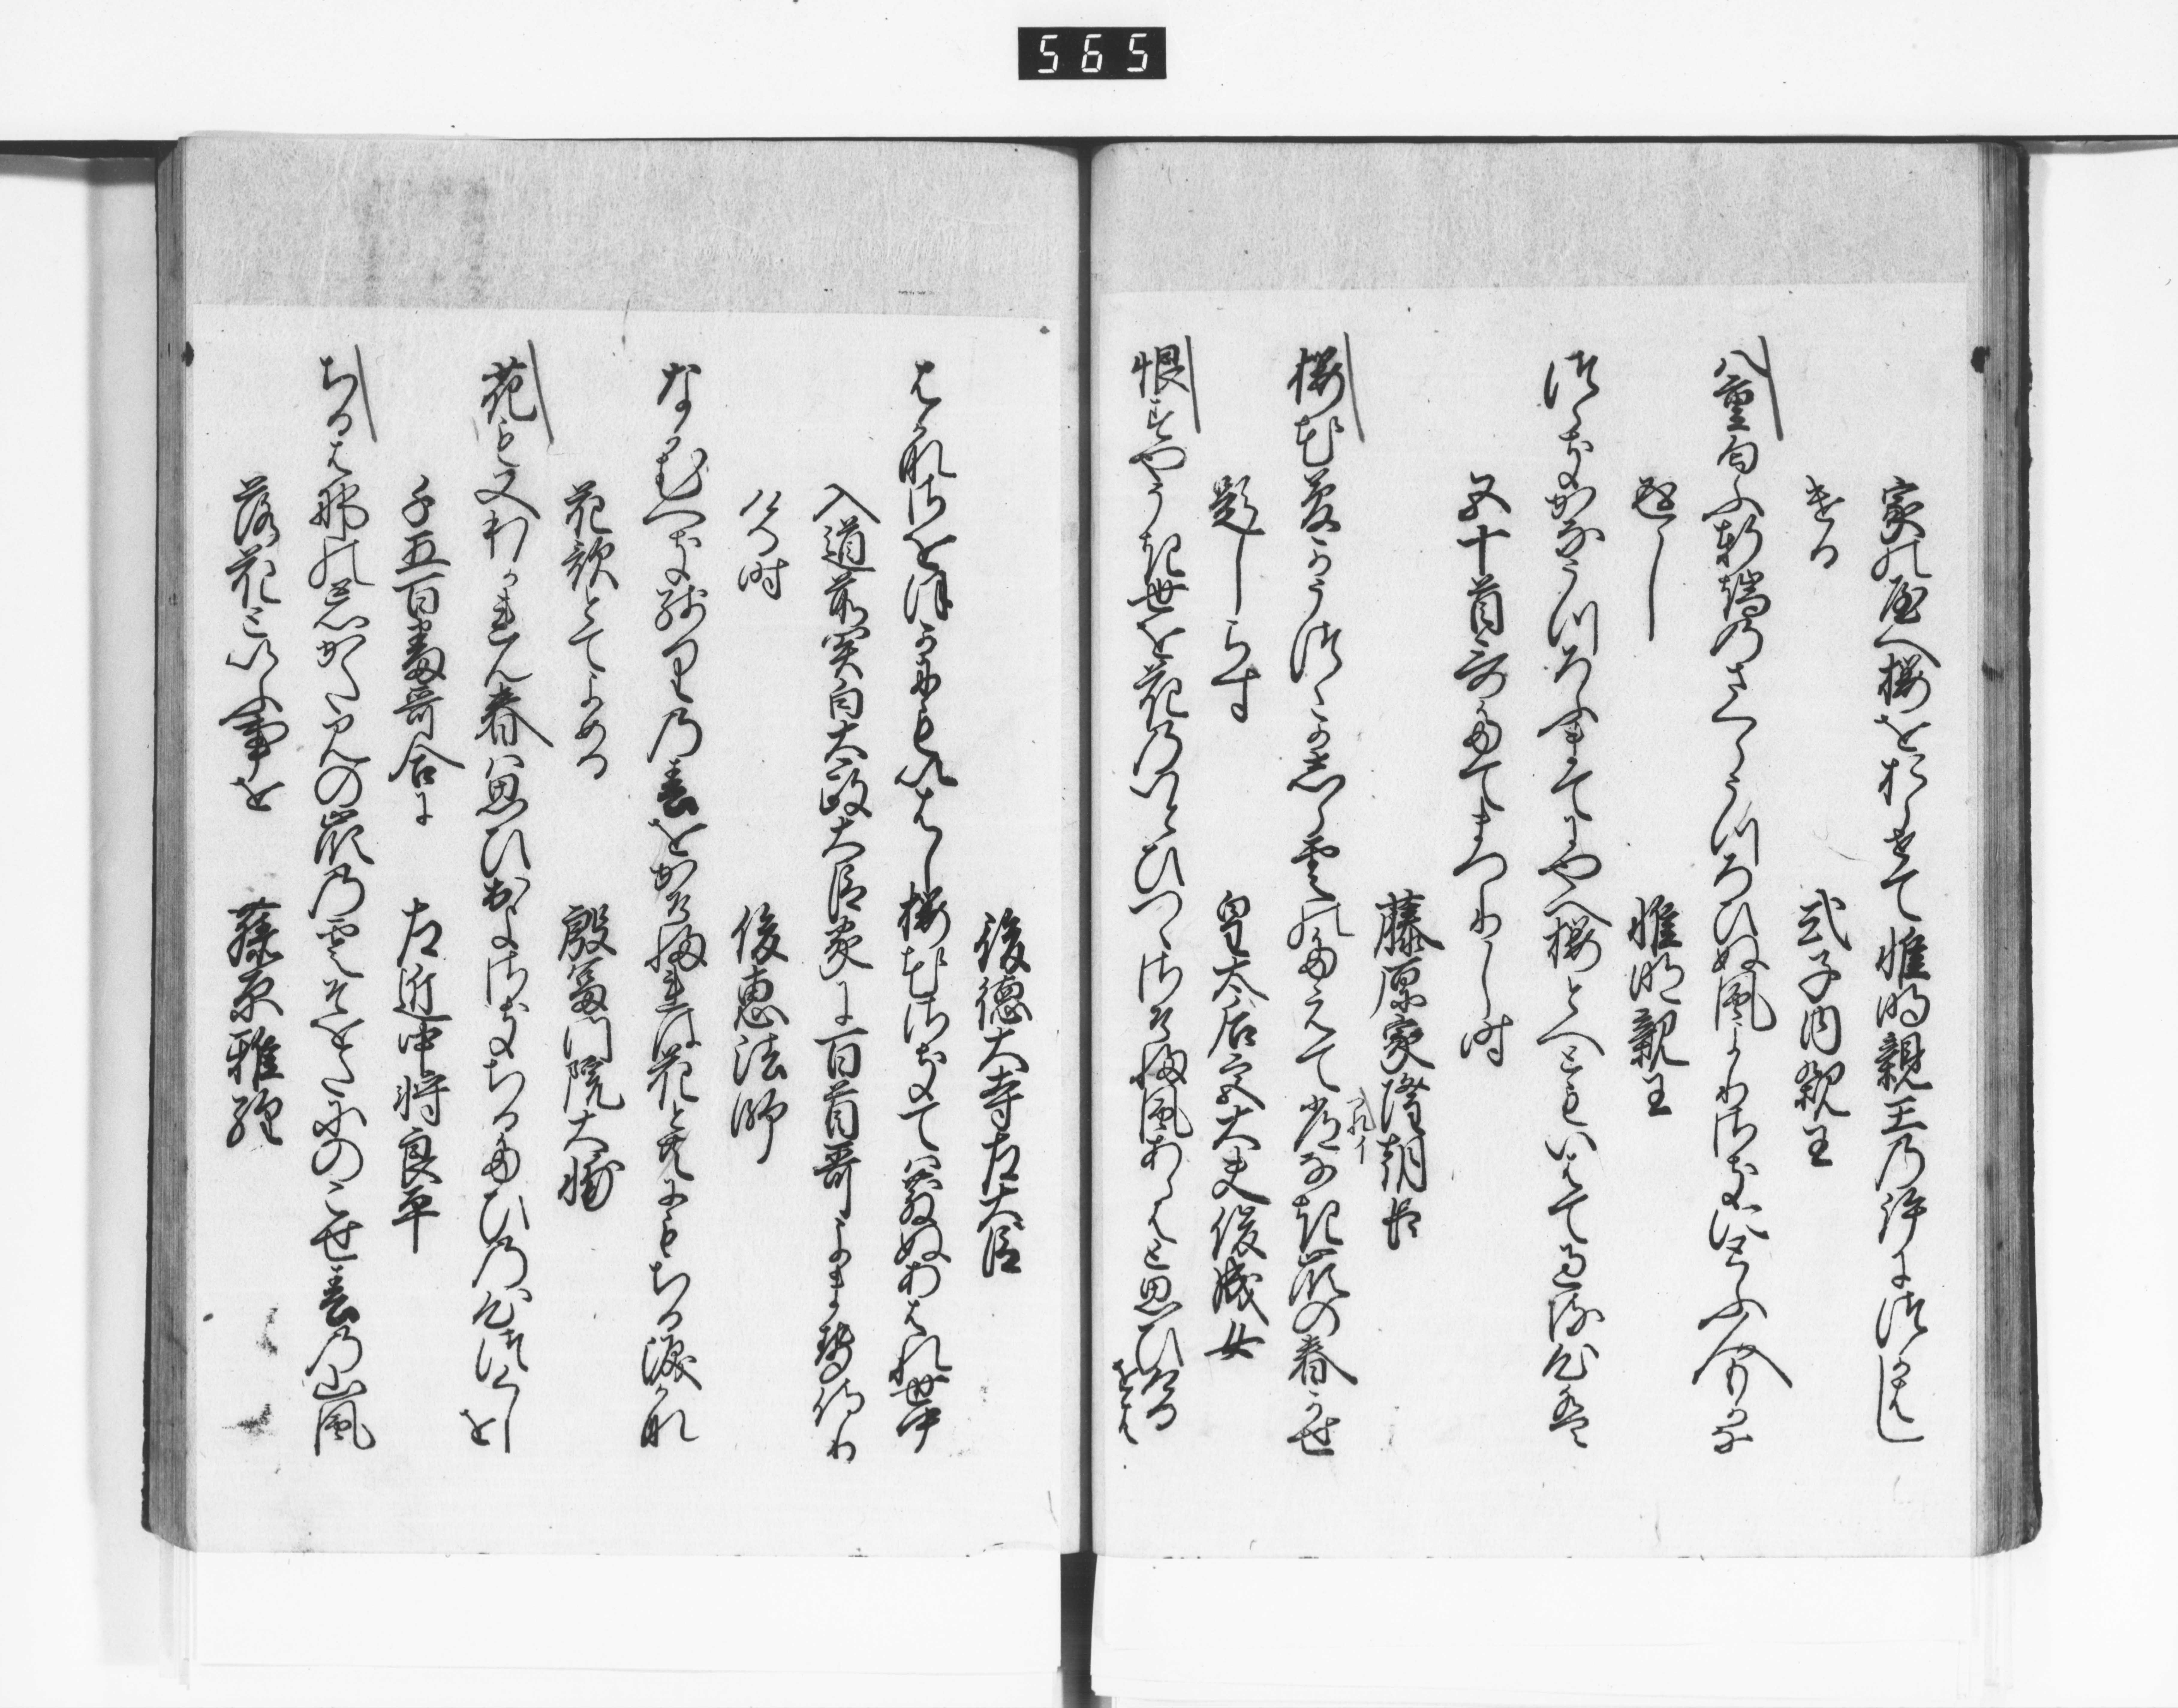 565
家のやへ桜をおらせて惟明親王の許につかはし
ける　式子内親王
八重匂ふ軒端のさくらうつろひぬ風よりさきにとふ人もかな
返し　惟明親王
つらきかなうつろふまてにやへ桜とへともいはて過る心は
五十首哥たてまつりし時
藤原家隆朝臣
桜花夢かうつゝか志ら雲のたえてつねなき峯の春かせ
題しらす　皇太后宮大夫俊成女
恨すやうき世を花のいとひつゝさそふ風あらはと思ひけるをは
後徳大寺左大臣
はかなさをほかにもいはし桜花さきては散ぬあはれ世中
入道前関白太政大臣家に百首哥よませ侍り
ける時　俊恵法師
なかむへき残りの春をかそふれは花とともにもちる涙かな
花歌とてよめる　殷富門院大輔
花も又わかれん春は思ひ出よさきちるたひの心つくしを
千五百番哥合に　左近中将良平
ちる花の忘かたみの峯の雲そをたにのこせ春の山風
落花といふ事を　藤原雅経